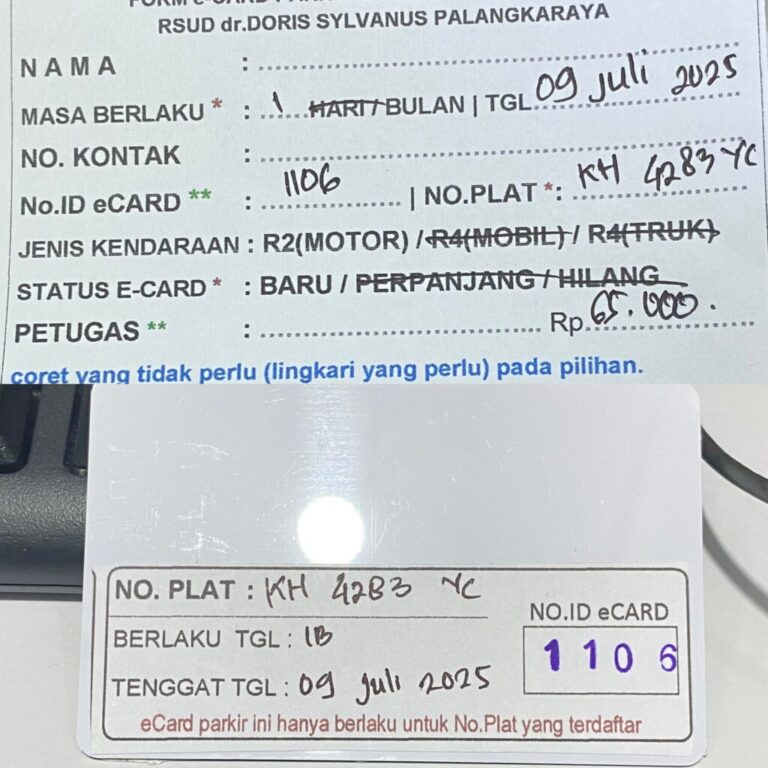 RSUD dr.DORIS SYLVANUS PALANGKARAYA
NAMA :
MASA BERLAKU * : 1 HARI / BULAN | TGL 09 Juli 2025
NO. KONTAK :
No.ID eCARD ** : 1106 | NO.PLAT *: KH 4283 YC
JENIS KENDARAAN : R2(MOTOR) / R4(MOBIL) / R4(TRUK)
STATUS E-CARD * : BARU / PERPANJANG / HILANG
PETUGAS ** : Rp. 65.000.
coret yang tidak perlu (lingkari yang perlu) pada pilihan.
NO. PLAT : KH 4283 YC
BERLAKU TGL : 1B
TENGGAT TGL : 09 Juli 2025
NO.ID eCARD
1106
eCard parkir ini hanya berlaku untuk No.Plat yang terdaftar